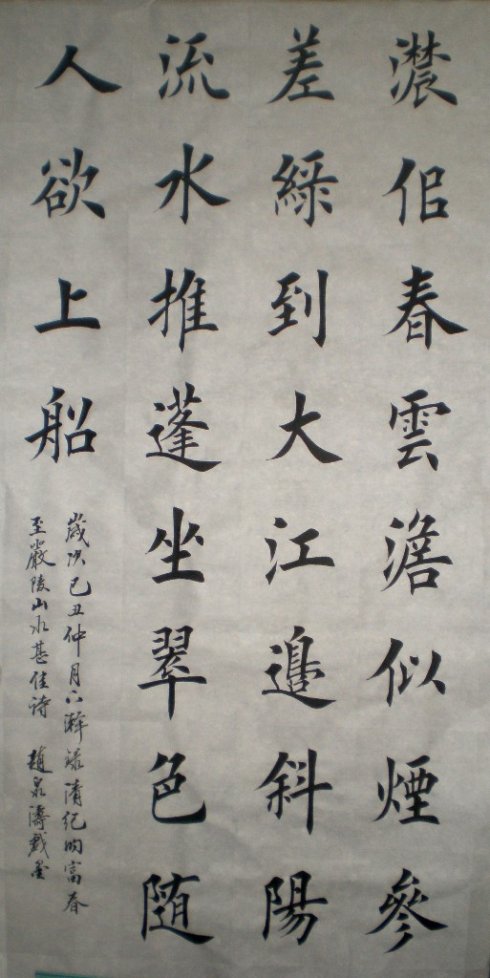 濃佀春雲澹似煙參
差綠到大江邊斜陽
流水推蓬坐翠色随
人欲上船
歲次己丑仲月下澣录清纪昀富春
至嚴陵山水甚佳诗 趙泉濤戲墨